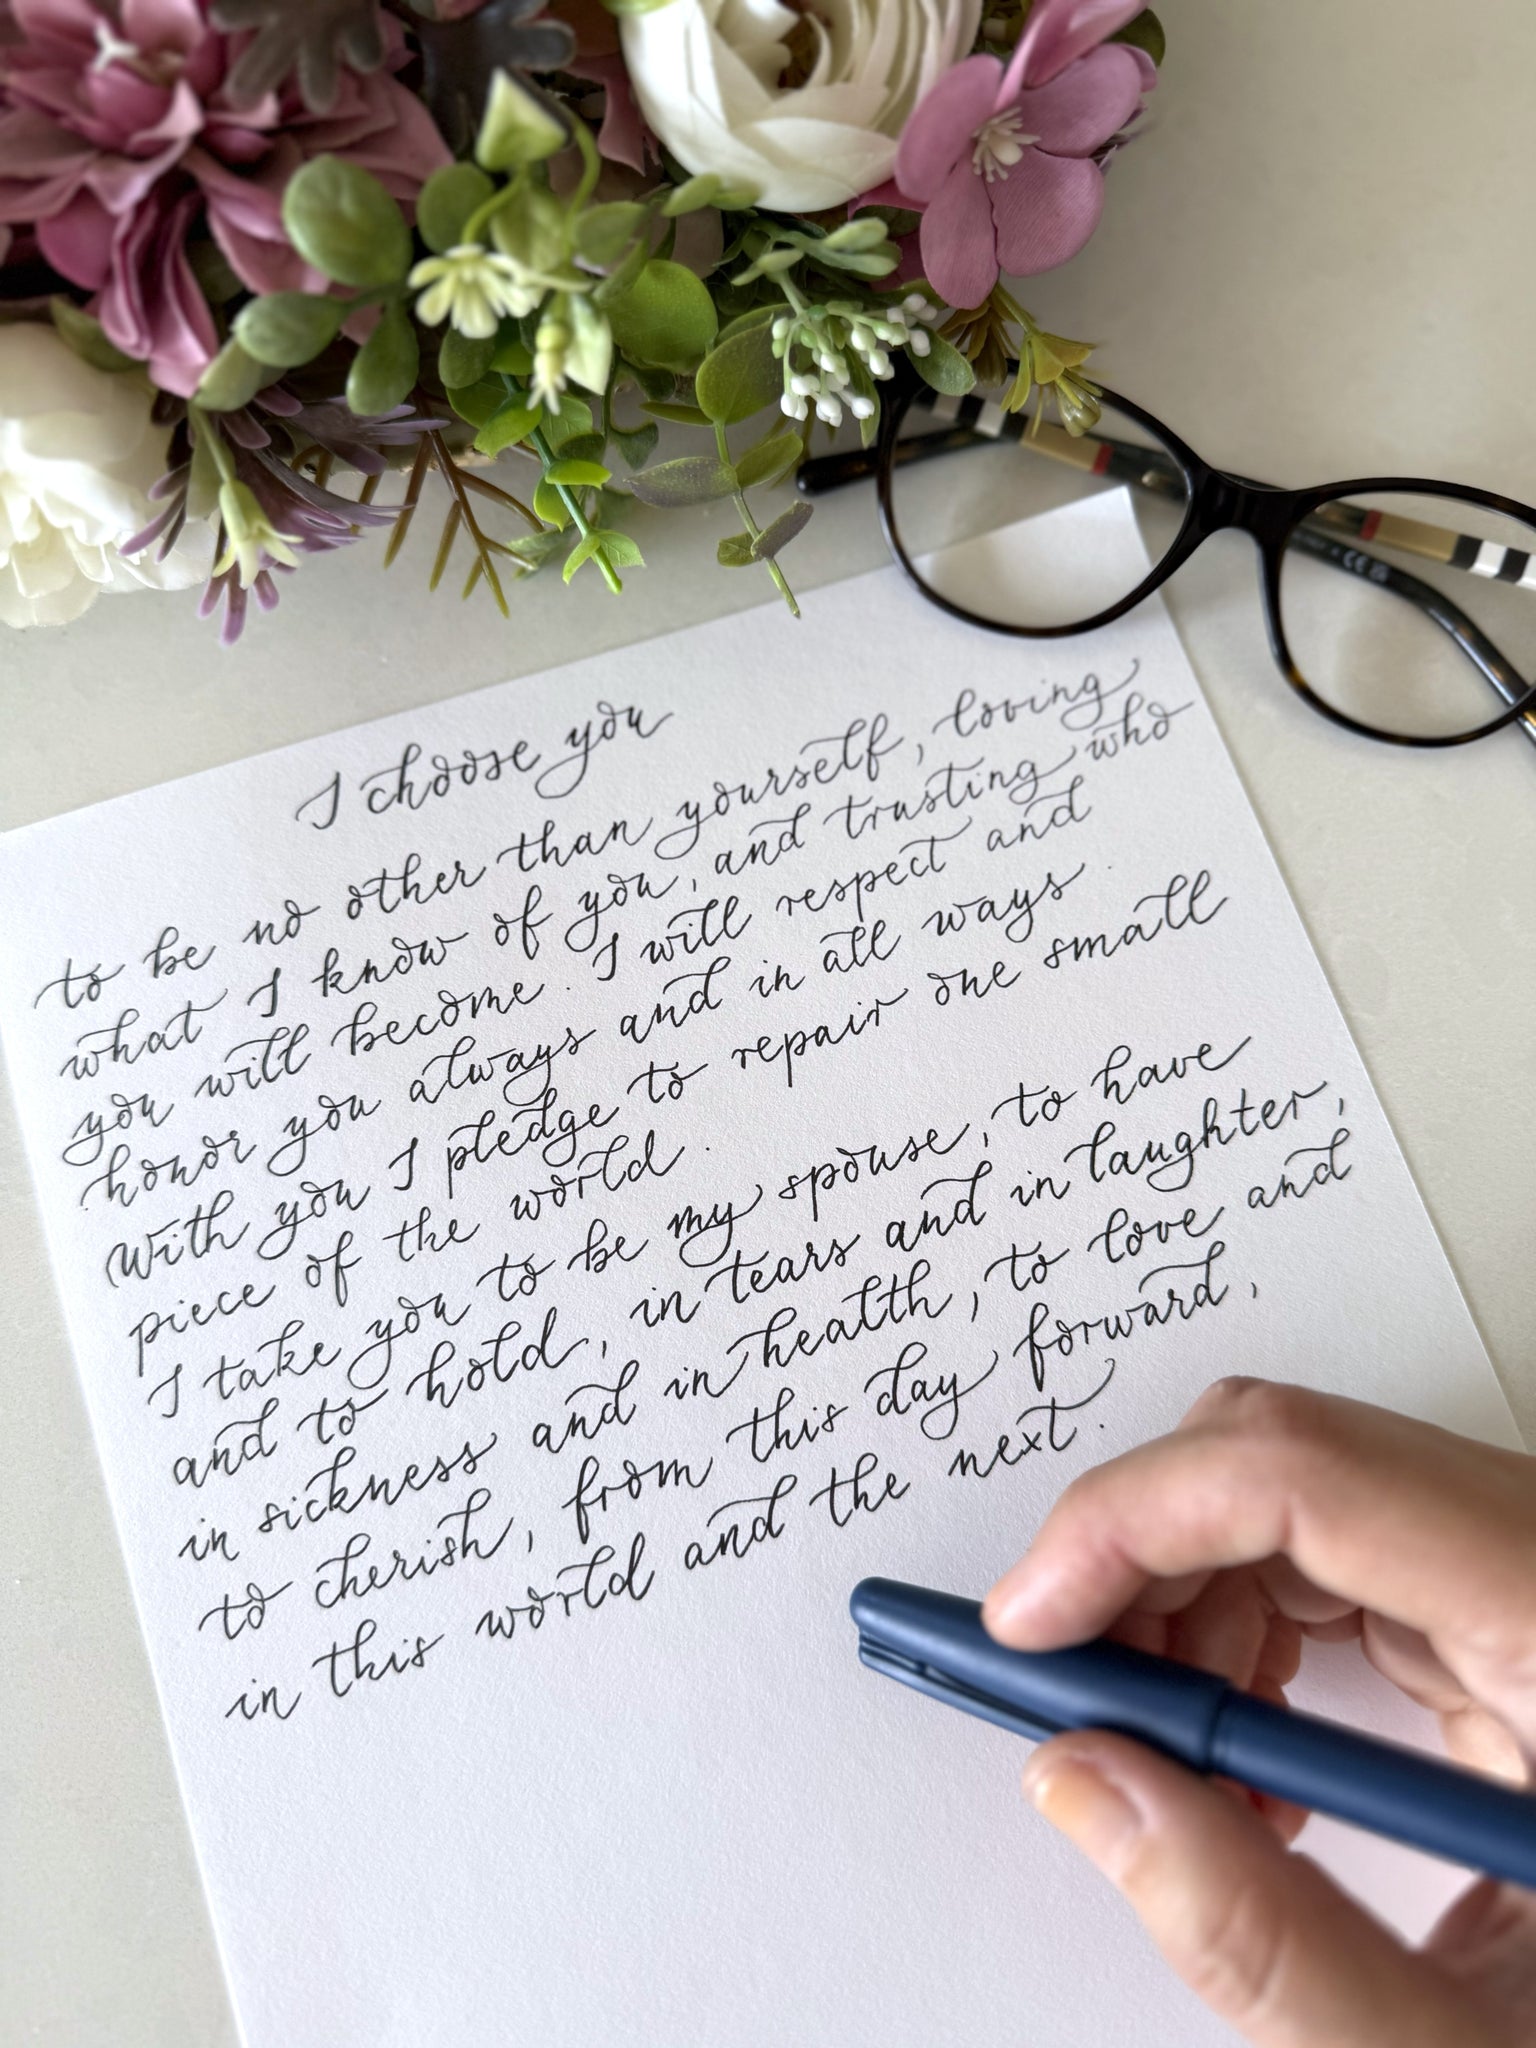 I choose you
to be no other than yourself, loving
what I know of you, and trusting who
you will become. I will respect and
honor you always and in all ways.
With you I pledge to repair one small
piece of the world.
I take you to be my spouse, to have
and to hold, in tears and in laughter,
in sickness and in health, to love and
to cherish, from this day forward,
in this world and the next.
CE